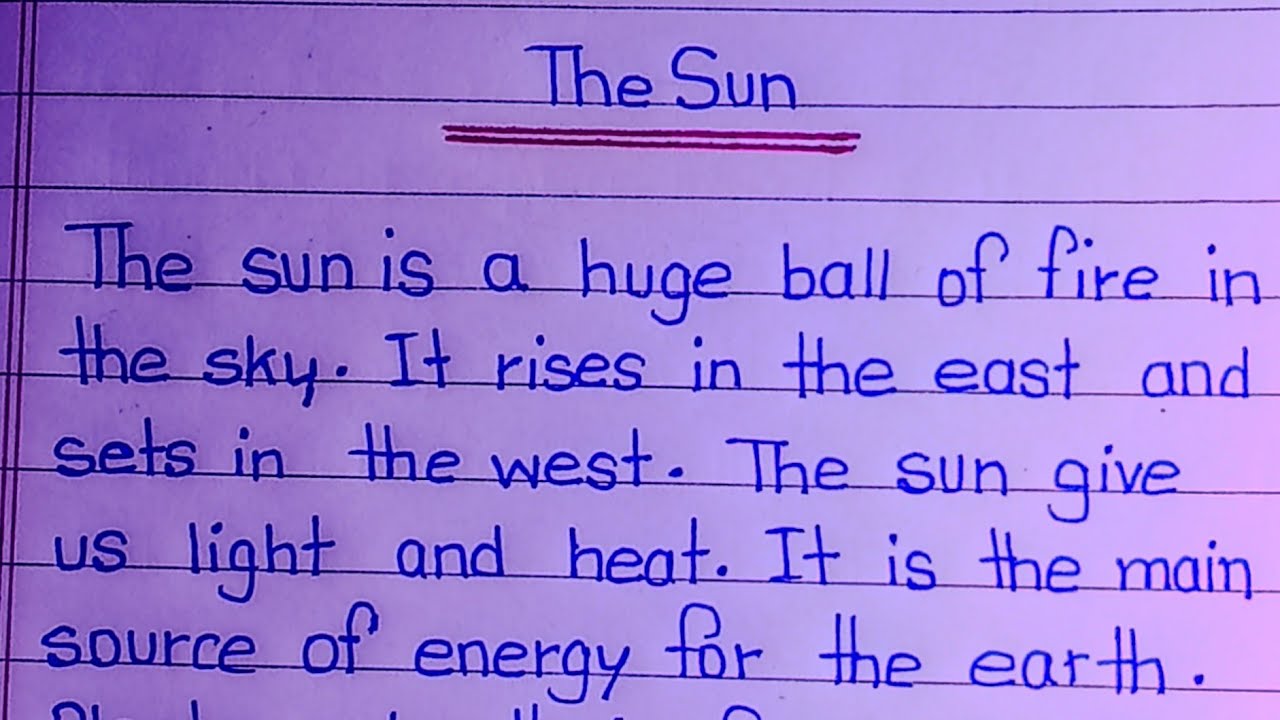 The Sun
The sun is a huge ball of fire in
the sky. It rises in the east and
sets in the west. The sun give
us light and heat. It is the main
source of energy for the earth.